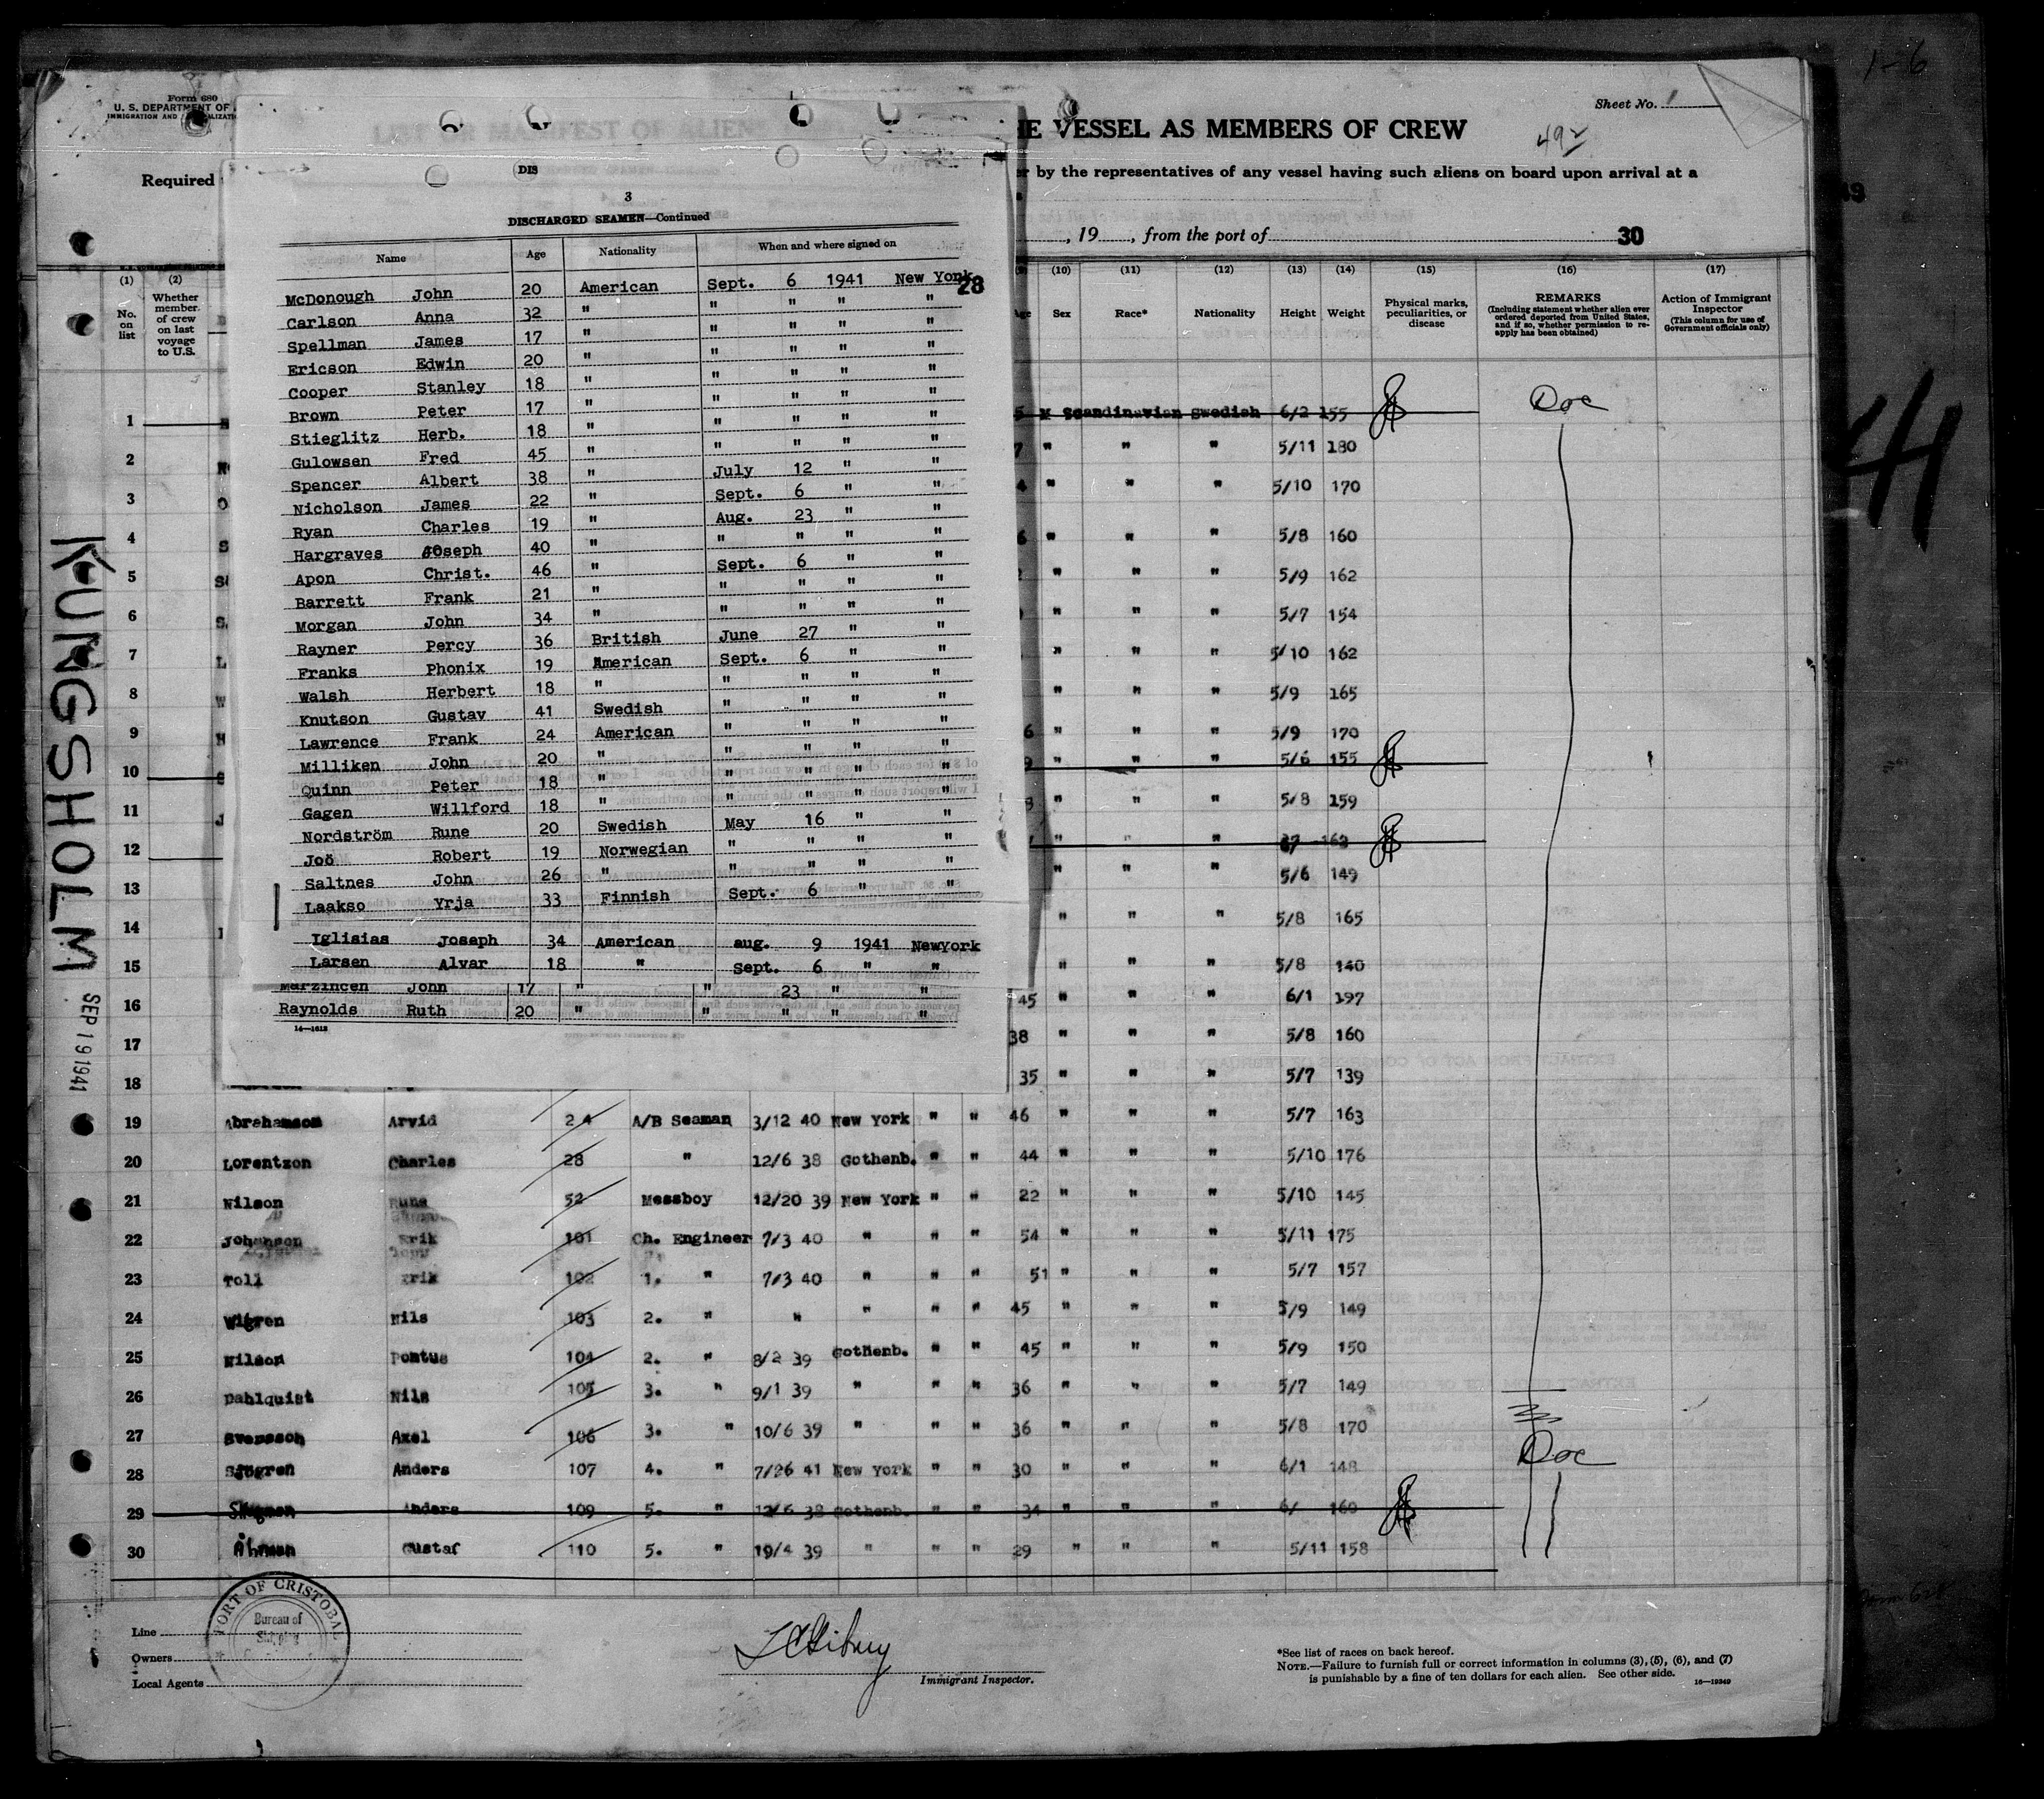 1-6
Form 680
U. S. DEPARTMENT OF
IMMIGRATION AND
Sheet No. 1
E VESSEL AS MEMBERS OF CREW
492
Required
by the representatives of any vessel having such aliens on board upon arrival at a
, 19 , from the port of 30
DIS
3
DISCHARGED SEAMEN—Continued
Name Age Nationality When and where signed on
McDonough John 20 American Sept. 6 1941 New York
28
Carlson Anna 32 " " " " "
Spellman James 17 " " " " "
Ericson Edwin 20 " " " " "
Cooper Stanley 18 " " " " "
Brown Peter 17 " " " " "
Stieglitz Herb. 18 " " " " "
Gulowsen Fred 45 " " " " "
Spencer Albert 38 " July 12 " "
Nicholson James 22 " Sept. 6 " "
Ryan Charles 19 " Aug. 23 " "
Hargraves Joseph 40 " " " " "
Apon Christ. 46 " Sept. 6 " "
Barrett Frank 21 " " " " "
Morgan John 34 " " " " "
Rayner Percy 36 British June 27 " "
Franks Phonix 19 American Sept. 6 " "
Walsh Herbert 18 " " " " "
Knutson Gustav 41 Swedish " " " "
Lawrence Frank 24 American " " " "
Milliken John 20 " " " " "
Quinn Peter 18 " " " " "
Gagen Willford 18 " " " " "
Nordström Rune 20 Swedish May 16 " "
Joö Robert 19 Norwegian " " " "
Saltnes John 26 " " " " "
Laakso Yrja 33 Finnish Sept. 6 " "
Iglisias Joseph 34 American aug. 9 1941 Newyork
Larsen Alvar 18 " Sept. 6 " "
Marzincen John 17 " " 23 " "
Raynolds Ruth 20 " " " " "
14—1612
(1) (2) (10) (11) (12) (13) (14) (15) (16) (17)
No. on list
Whether member of crew on last voyage to U.S.
Age Sex Race* Nationality Height Weight
Physical marks, peculiarities, or disease
REMARKS
(Including statement whether alien ever ordered deported from United States, and if so, whether permission to reapply has been obtained)
Action of Immigrant Inspector
(This column for use of Government officials only)
1 5 M Scandinavian Swedish 6/2 155 Doc
2 7 " " " 5/11 180
3 4 " " " 5/10 170
4 6 " " " 5/8 160
5 2 " " " 5/9 162
6 " " " 5/7 154
7 " " " 5/10 162
8 " " " 5/9 165
9 6 " " " 5/9 170
10 9 " " " 5/6 155
11 8 " " " 5/8 159
12 " " "
13 " " " 5/6 149
14 " " " 5/8 165
15 " " " 5/8 140
16 45 " " " 6/1 197
17 38 " " " 5/8 160
18 35 " " " 5/7 139
19 Abrahamson Arvid 24 A/B Seaman 3/12 40 New York " " 46 " " " 5/7 163
20 Lorentzon Charles 28 " 12/6 38 Gothenb. " " 44 " " " 5/10 176
21 Nilson Rune 52 Messboy 12/20 39 New York " " 22 " " " 5/10 145
22 Johanson Erik 101 Ch. Engineer 7/3 40 " " " 54 " " " 5/11 175
23 Toll Erik 102 1. " 7/3 40 " " " 51 " " " 5/7 157
24 Wigren Nils 103 2. " " " " " 45 " " " 5/9 149
25 Nilson Pontus 104 2. " 8/2 39 Gothenb. " " 45 " " " 5/9 150
26 Dahlquist Nils 105 3. " 9/1 39 " " " 36 " " " 5/7 149
27 Svensson Axel 106 3. " 10/6 39 " " " 36 " " " 5/8 170
Doc
28 Sjögren Anders 107 4. " 7/26 41 New York " " 30 " " " 6/1 148
29 Anders 109 5. " 12/6 38 Gothenb. " " 34 " " " 6/ 160
30 Åhman Gustaf 110 5. " 19/4 39 " " " 29 " " " 5/11 158
KUNGSHOLM
SEP 19 1941
41
PORT OF CRISTOBAL
Bureau of
Line
Owners
Local Agents
Immigrant Inspector.
*See list of races on back hereof.
NOTE.—Failure to furnish full or correct information in columns (3), (5), (6), and (7)
is punishable by a fine of ten dollars for each alien. See other side.
16—19349